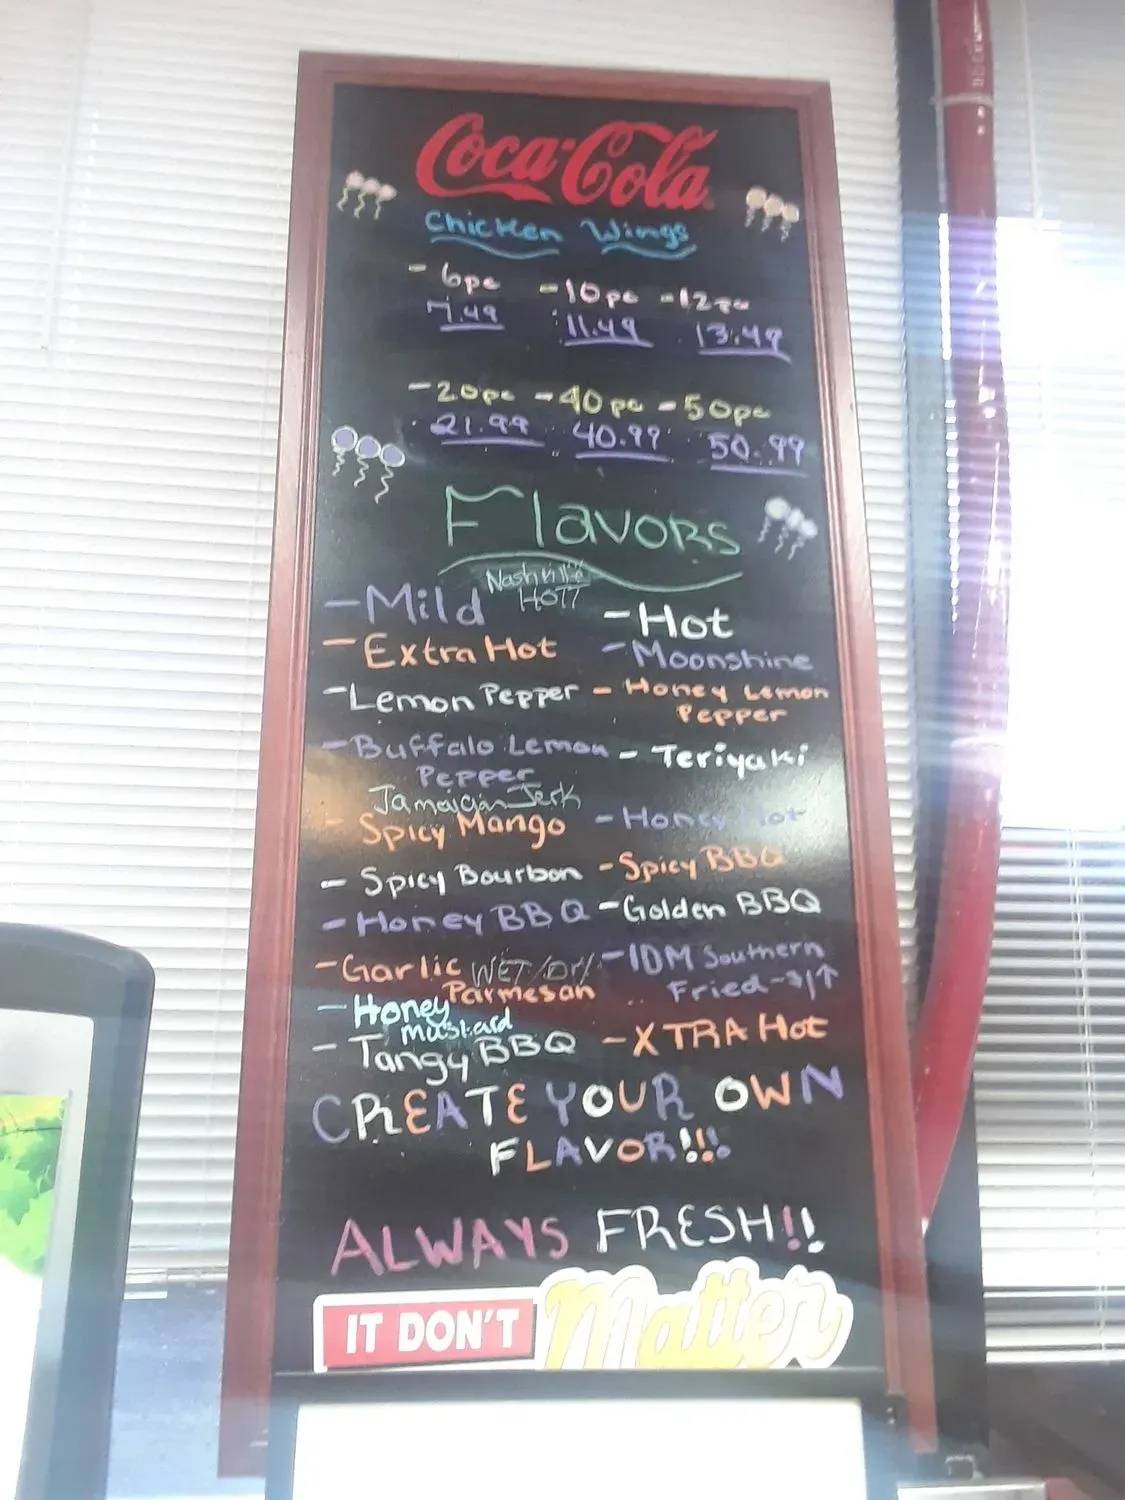 Coca-Cola
Chicken Wings
- 6pc - 10pc - 12pc
7.49 11.49 13.49
- 20pc - 40pc - 50pc
21.99 40.99 50.99
Flavors
Nashville
HOT
- Mild - Hot
- Extra Hot - Moonshine
- Lemon Pepper - Honey Lemon
Pepper
- Buffalo Lemon - Teriyaki
Pepper
Jamaican Jerk
- Spicy Mango - Honey Hot
- Spicy Bourbon - Spicy BBQ
- Honey BBQ - Golden BBQ
- Garlic WET/Dry - IDM Southern
Parmesan Fried
- Honey
Mustard
- Tangy BBQ - XTRA Hot
CREATE YOUR OWN
FLAVOR!!!
ALWAYS FRESH!!
IT DON'T Matter